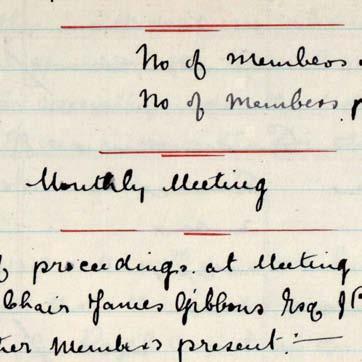 No of Members
No of Members
Monthly Meeting
proceedings at Meeting
Chair James Gibbons Esq J
Members present :-